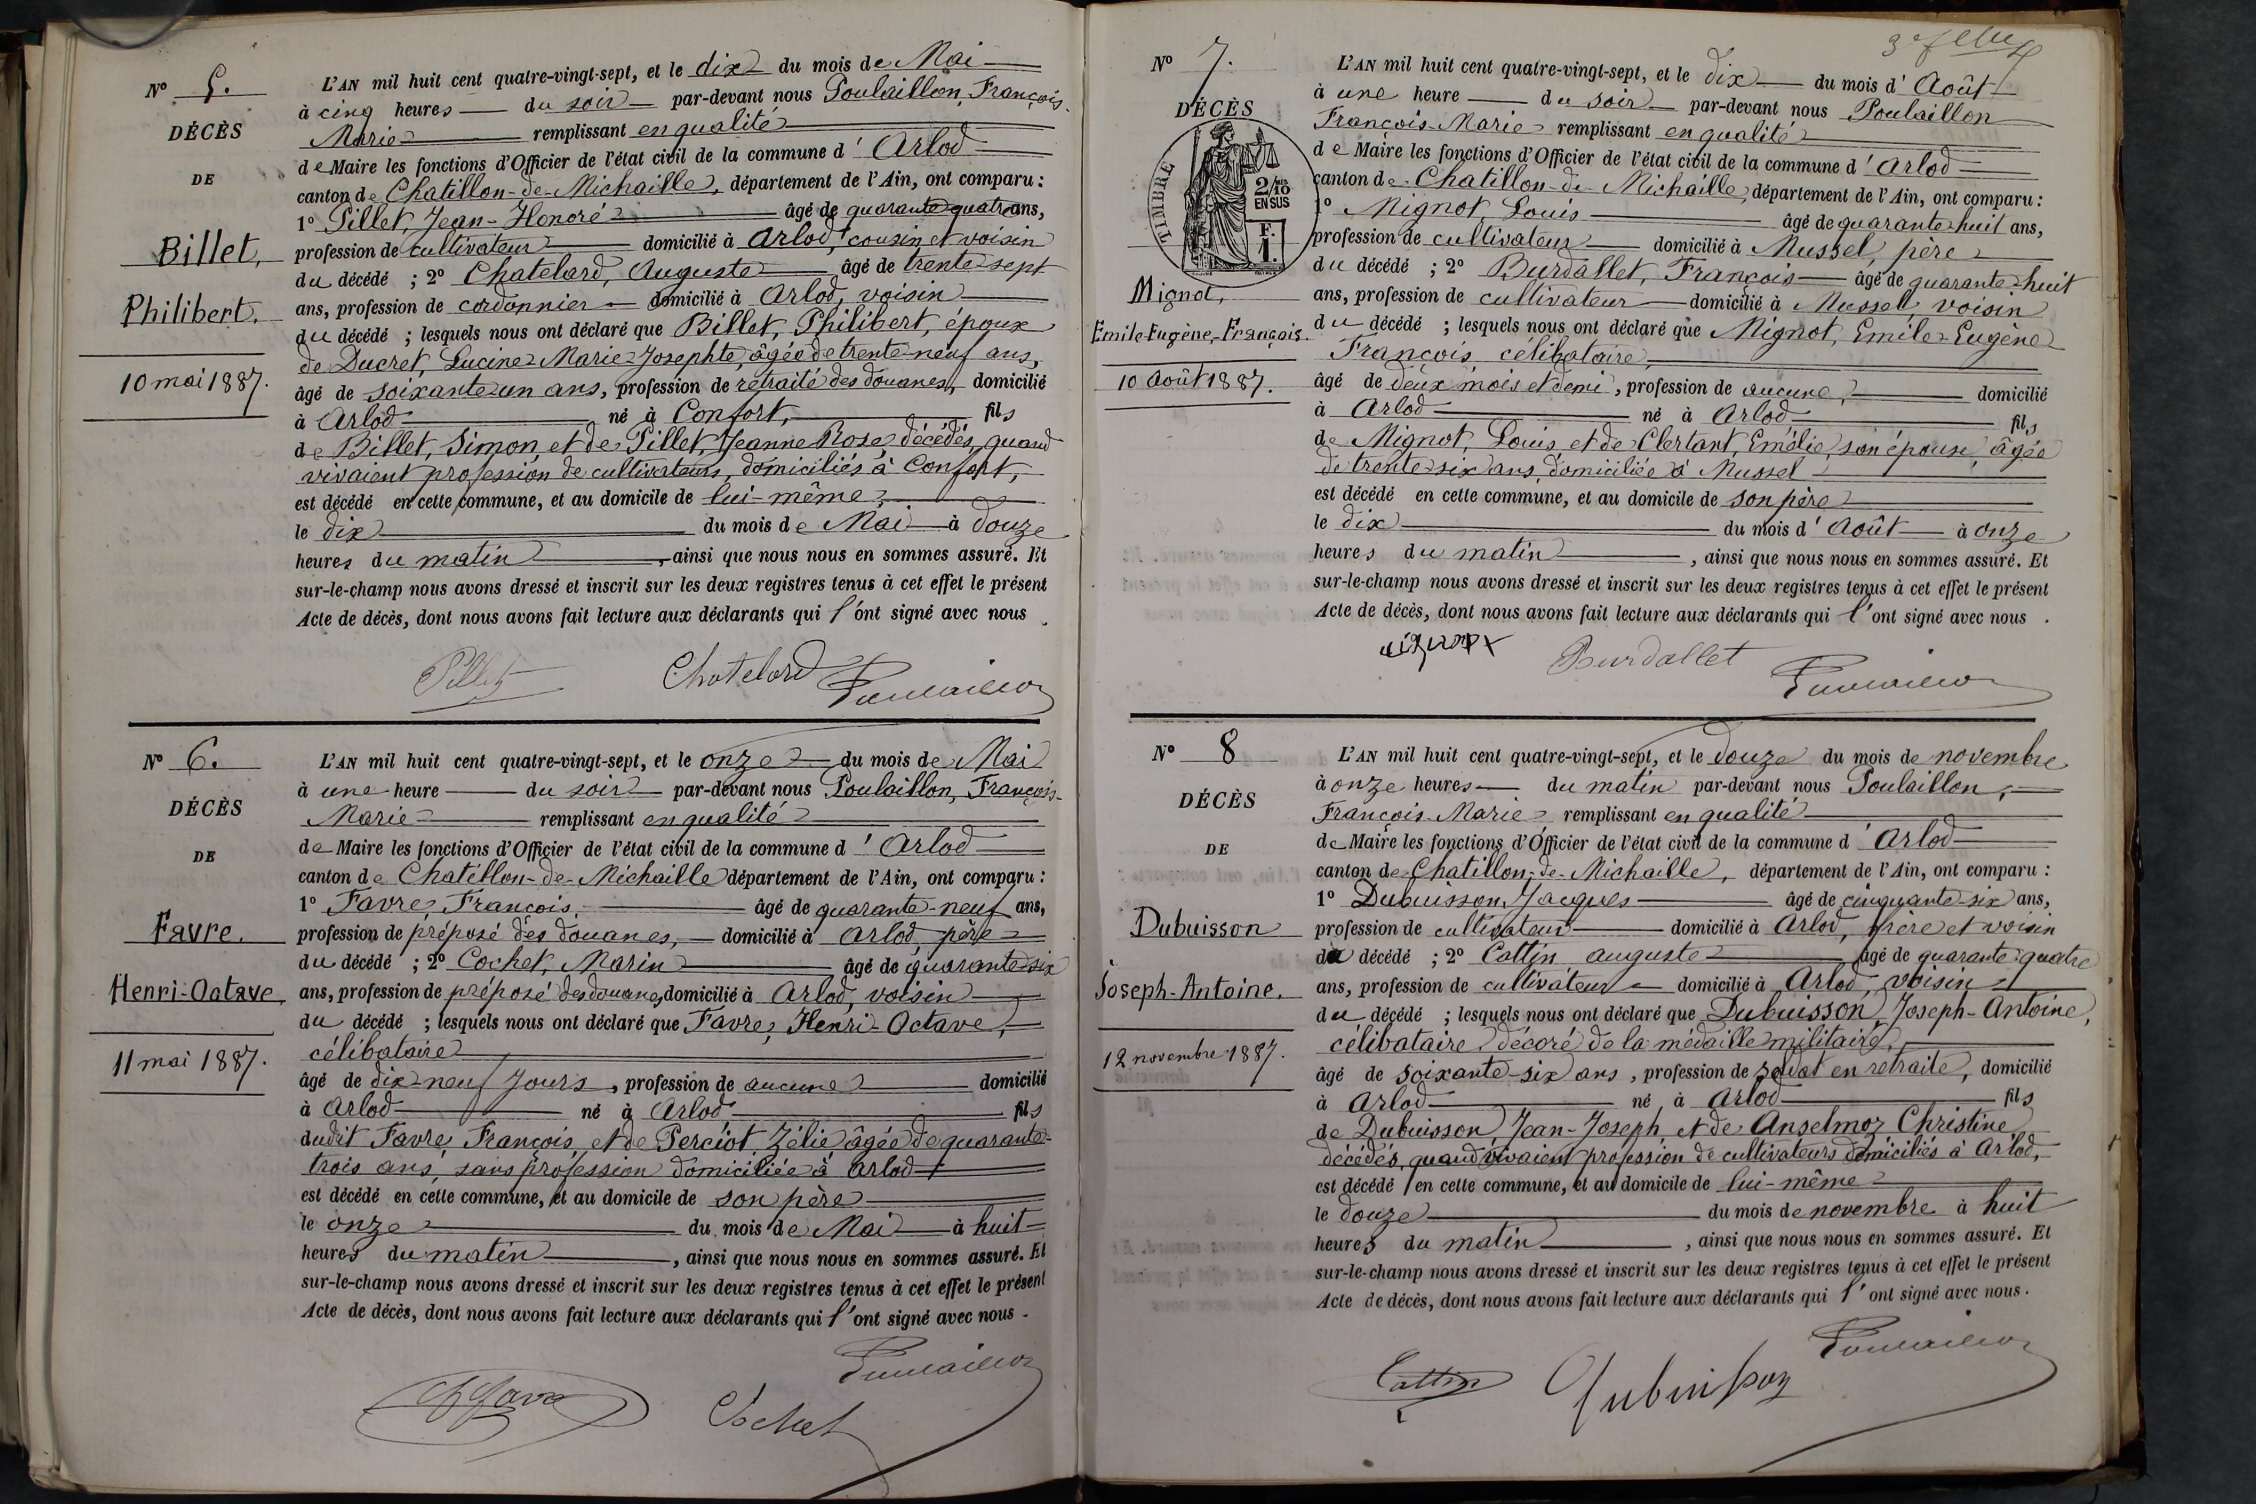 N° 5.
DÉCÈS
DE
Billet,
Philibert.
10 mai 1887.
L'AN mil huit cent quatre-vingt-sept, et le dix du mois de Mai
à cinq heures du soir par-devant nous Poulaillon, François-
Marie remplissant en qualité
de Maire les fonctions d'Officier de l'état civil de la commune d'Arlod
canton de Chatillon-de-Michaille, département de l'Ain, ont comparu :
1° Pillet, Jean-Honoré âgé de quarante quatre ans,
profession de cultivateur domicilié à Arlod, cousin et voisin
du décédé ; 2° Chatelard, Auguste âgé de trente-sept
ans, profession de cordonnier domicilié à Arlod, voisin
du décédé ; lesquels nous ont déclaré que Billet, Philibert, époux
de Ducret, Lucine Marie Josephte, âgée de trente-neuf ans,
âgé de soixante un ans, profession de retraité des douanes, domicilié
à Arlod né à Confort, fils
de Billet, Simon, et de Pillet, Jeanne Rose, décédés, quand
vivaient profession de cultivateurs, domiciliés à Confort,
est décédé en cette commune, et au domicile de lui-même,
le dix du mois de Mai à douze
heures du matin, ainsi que nous nous en sommes assuré. Et
sur-le-champ nous avons dressé et inscrit sur les deux registres tenus à cet effet le présent
Acte de décès, dont nous avons fait lecture aux déclarants qui l'ont signé avec nous.
Pillet Chatelard Poulaillon
N° 6.
DÉCÈS
DE
Favre.
Henri-Octave.
11 mai 1887.
L'AN mil huit cent quatre-vingt-sept, et le onze du mois de Mai
à une heure du soir par-devant nous Poulaillon, François-
Marie remplissant en qualité
de Maire les fonctions d'Officier de l'état civil de la commune d'Arlod
canton de Chatillon-de-Michaille département de l'Ain, ont comparu :
1° Favre, François, âgé de quarante-neuf ans,
profession de préposé des douanes, domicilié à Arlod, père
du décédé ; 2° Cochet, Marin âgé de quarante-six
ans, profession de préposé des douanes, domicilié à Arlod, voisin
du décédé ; lesquels nous ont déclaré que Favre, Henri-Octave,
célibataire
âgé de dix-neuf jours, profession de aucune domicilié
à Arlod né à Arlod fils
dudit Favre, François, et de Perciot, Zélie âgée de quarante-
trois ans, sans profession domiciliée à Arlod
est décédé en cette commune, et au domicile de son père
le onze du mois de Mai à huit
heures du matin, ainsi que nous nous en sommes assuré. Et
sur-le-champ nous avons dressé et inscrit sur les deux registres tenus à cet effet le présent
Acte de décès, dont nous avons fait lecture aux déclarants qui l'ont signé avec nous.
Poulaillon
Favre Cochet
N° 7.
DÉCÈS
TIMBRE
2/10 EN SUS
F. 1.
Mignot,
Emile-Eugène-François.
10 Août 1887.
L'AN mil huit cent quatre-vingt-sept, et le dix du mois d'Août
à une heure du soir par-devant nous Poulaillon
François-Marie remplissant en qualité
de Maire les fonctions d'Officier de l'état civil de la commune d'Arlod
canton de Chatillon-de-Michaille, département de l'Ain, ont comparu :
1° Mignot, Louis âgé de quarante huit ans,
profession de cultivateur domicilié à Mussel, père
du décédé ; 2° Burdallet, François âgé de quarante-huit
ans, profession de cultivateur domicilié à Mussel, voisin
du décédé ; lesquels nous ont déclaré que Mignot, Emile-Eugène
François célibataire,
âgé de deux mois et demi, profession de aucune, domicilié
à Arlod né à Arlod fils
de Mignot, Louis, et de Clertant, Emélie, son épouse, âgée
de trente six ans, domiciliée à Mussel
est décédé en cette commune, et au domicile de son père
le dix du mois d'Août à onze
heures du matin, ainsi que nous nous en sommes assuré. Et
sur-le-champ nous avons dressé et inscrit sur les deux registres tenus à cet effet le présent
Acte de décès, dont nous avons fait lecture aux déclarants qui l'ont signé avec nous.
Mignot Burdallet Poulaillon
N° 8
DÉCÈS
DE
Dubuisson
Joseph-Antoine.
12 novembre 1887.
L'AN mil huit cent quatre-vingt-sept, et le douze du mois de novembre
à onze heures du matin par-devant nous Poulaillon,
François-Marie remplissant en qualité
de Maire les fonctions d'Officier de l'état civil de la commune d'Arlod
canton de Chatillon-de-Michaille, département de l'Ain, ont comparu :
1° Dubuisson, Jacques âgé de cinquante-six ans,
profession de cultivateur domicilié à Arlod, frère et voisin
du décédé ; 2° Cattin auguste âgé de quarante quatre
ans, profession de cultivateur domicilié à Arlod, voisin
du décédé ; lesquels nous ont déclaré que Dubuisson, Joseph-Antoine,
célibataire, décoré de la médaille militaire,
âgé de soixante-six ans, profession de soldat en retraite, domicilié
à Arlod né à Arlod fils
de Dubuisson, Jean-Joseph et de Anselmoz Christine
décédés, quand vivaient profession de cultivateurs domiciliés à Arlod,
est décédé en cette commune, et au domicile de lui-même
le douze du mois de novembre à huit
heures du matin, ainsi que nous nous en sommes assuré. Et
sur-le-champ nous avons dressé et inscrit sur les deux registres tenus à cet effet le présent
Acte de décès, dont nous avons fait lecture aux déclarants qui l'ont signé avec nous.
Poulaillon
Cattin Dubuisson